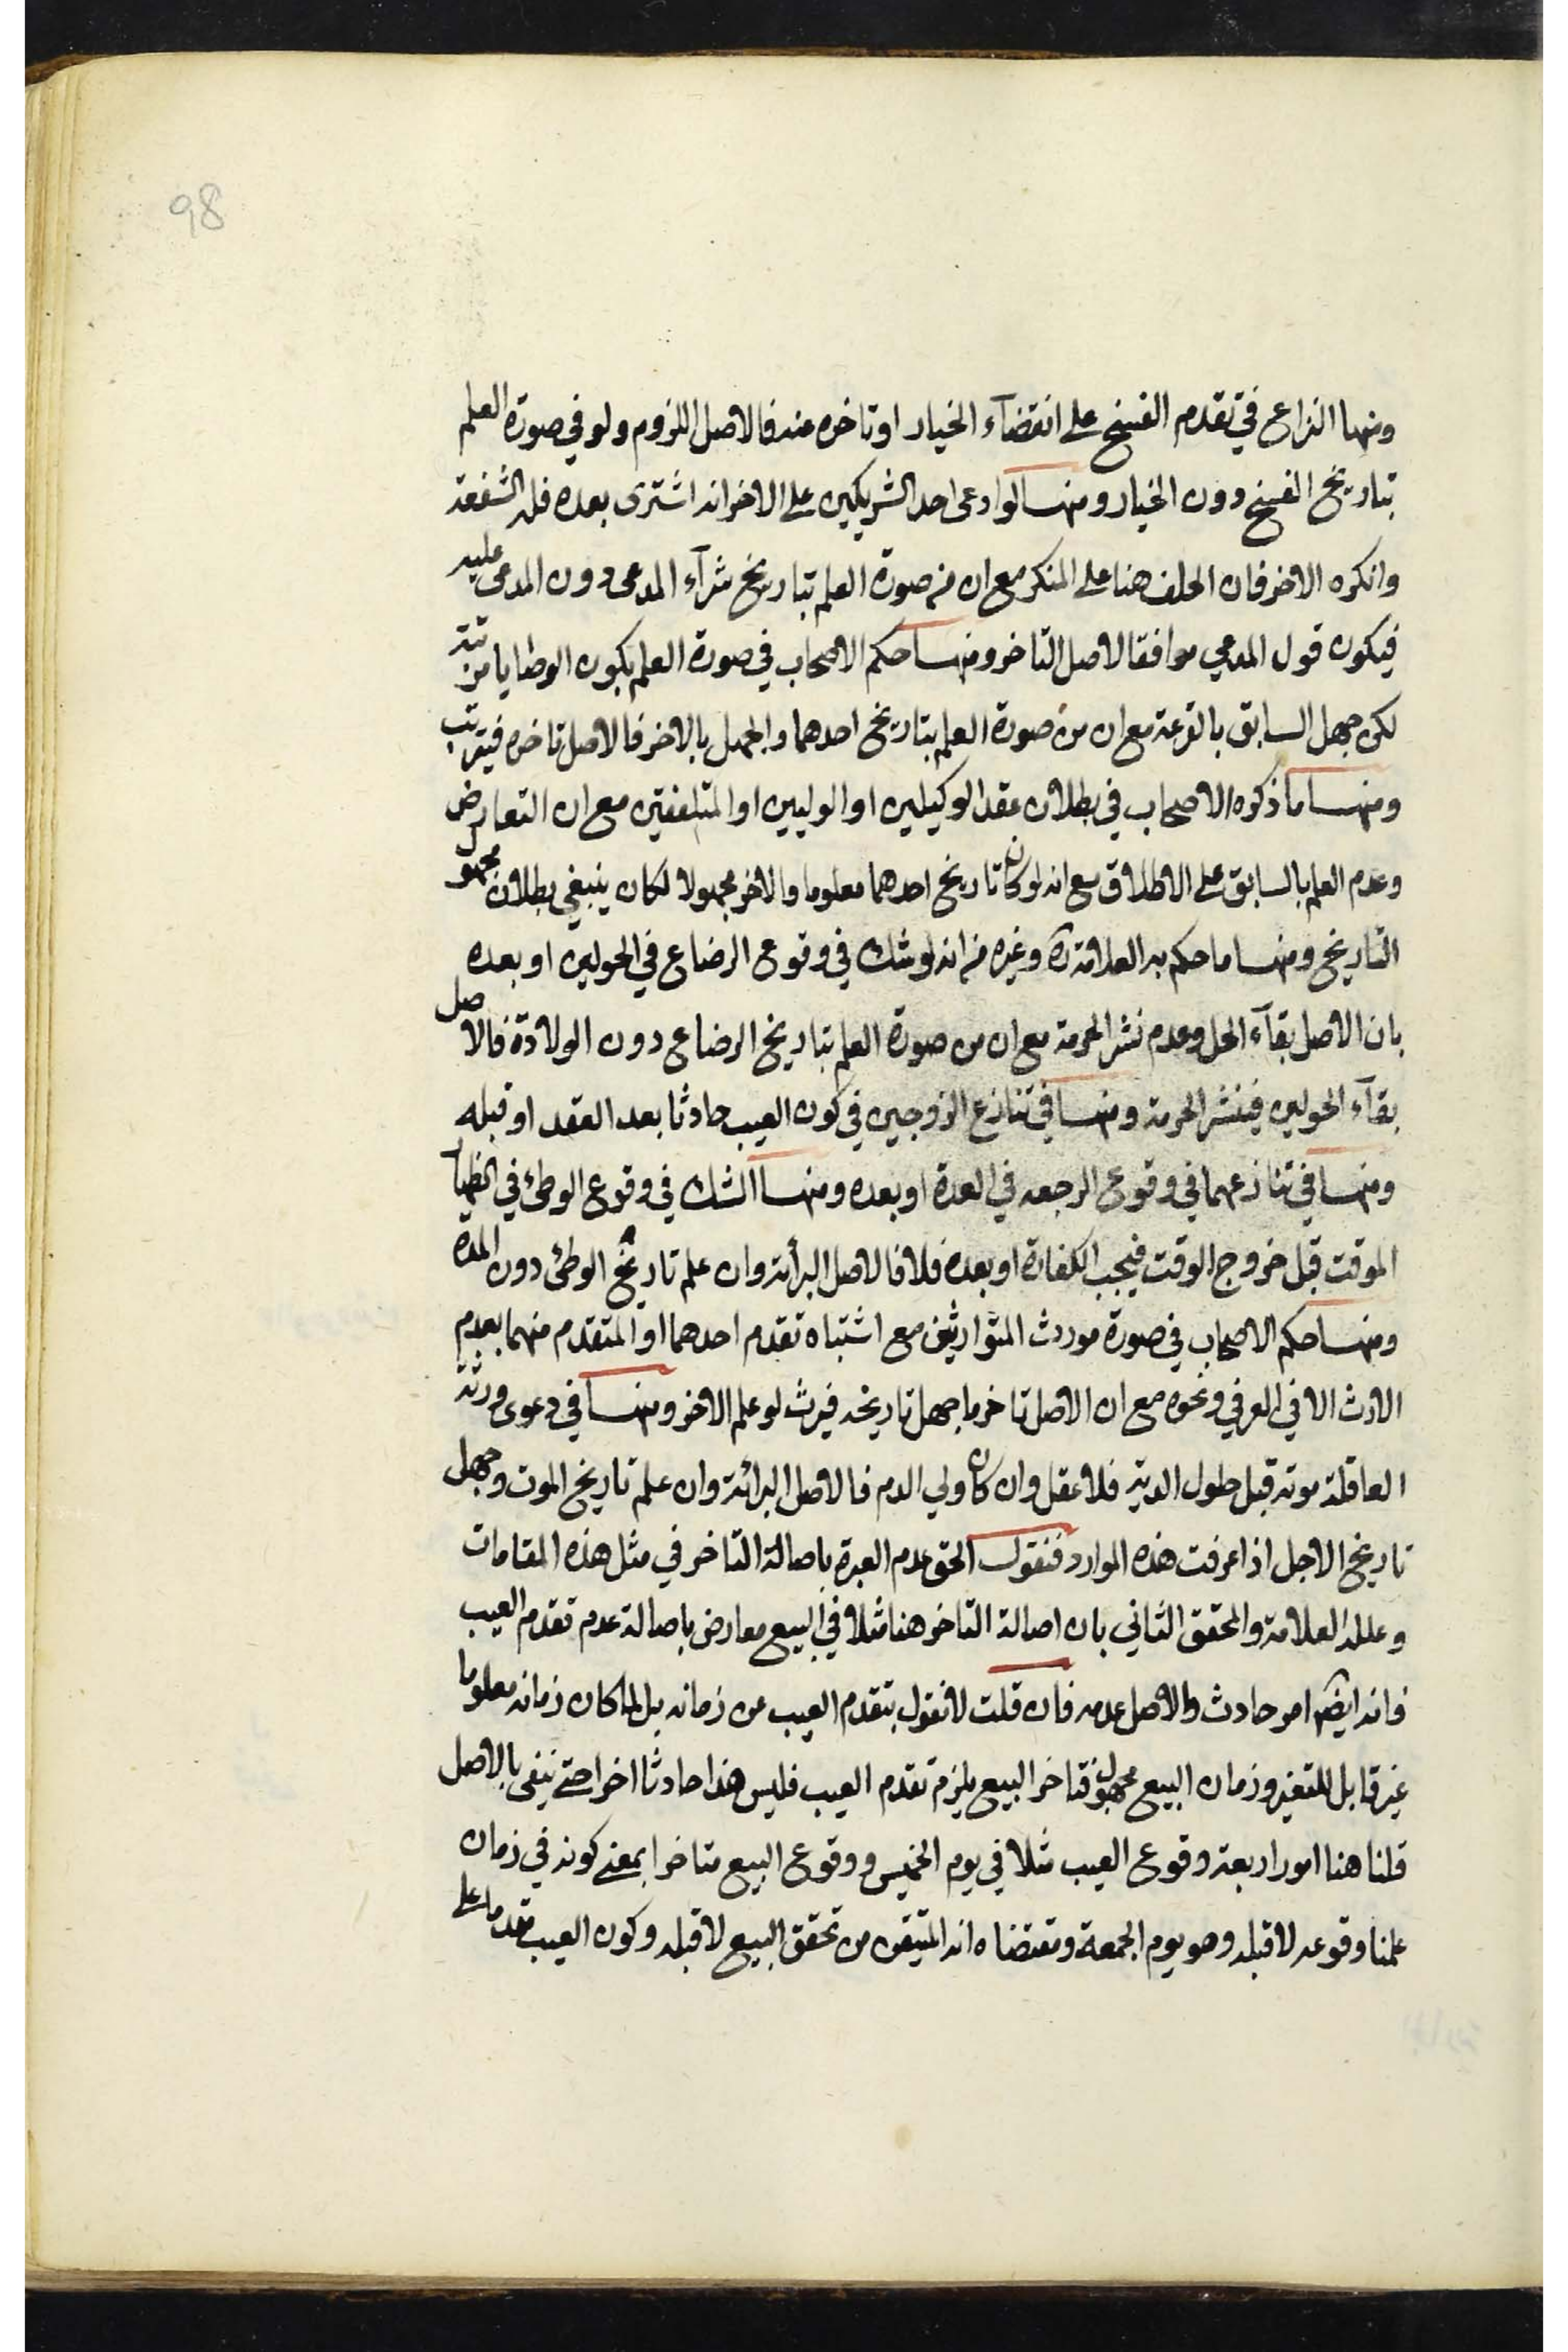 98
ومنها النزاع في تقدم الفسخ على انقضآء الخيار او تاخره عنه فالاصل اللزوم ولو في صورة العلم
بتاريخ الفسخ دون الخيار ومنها لو ادعى احد الشريكين على الاخر انه اشترى بعده فله الشفعة
وانكره الاخر فان الحلف هنا على المنكر مع ان من صورة العلم بتاريخ شرآء المدعى دون المدعى عليه
فيكون قول المدعي موافقا لاصل التاخر ومنها حكم الاصحاب في صورة العلم بكون الوصايا مرتبة
لكن جهل السابق بالقرعة مع ان من صورة العلم بتاريخ احدهما والجهل بالاخر فالاصل تاخره فيترتب
ومنها ما ذكره الاصحاب في بطلان عقد الوكيلين او الوليين او الملتقطين مع ان التعارض
وعدم العلم بالسابق على الاطلاق مع انه لو كان تاريخ احدهما معلوما والاخر مجهولا لكان ينبغي بطلان مجهول
التاريخ ومنها ما حكم به العلامة ره وغيره من انه لو شك في وقوع الرضاع في الحولين او بعده
بان الاصل بقآء الحل وعدم نشر الحرمة مع ان من صورة العلم بتاريخ الرضاع دون الولادة فالاصل
بقآء الحولين فينشر الحرمة ومنها في تنازع الزوجين في كون العيب حادثا بعد العقد او قبله
ومنها في تنازعهما في وقوع الرجعه في العدة او بعده ومنها الشك في وقوع الوطئ في الظهار
الموقت قبل خروج الوقت فيجب الكفارة او بعده فلا فالاصل البرأئة وان علم تاريخ الوطئ دون المدة
ومنها حكم الاصحاب في صورة موردث المتوارثين مع اشتباه تقدم احدهما او المتقدم منهما بعدم
الارث الا في الغرقي ونحوه مع ان الاصل تاخر ما جهل تاريخه فيرث لو علم الاخر ومنها في دعوى ورثة
العاقلة موته قبل حلول الدية فلا عقل وان كان ولي الدم فالاصل البرائة وان علم تاريخ الموت وجهل
تاريخ الاجل اذا عرفت هذه الموارد فنقول الحق عدم العبرة باصالة التاخر في مثل هذه المقامات
وعلله العلامة والمحقق الثاني بان اصالة التاخر هنا مثلا في البيع معارض باصالة عدم تقدم العيب
فانه ايضا امر حادث والاصل عدمه فان قلت لا نقول بتقدم العيب عن زمانه بل لما كان زمانه معلوما
غير قابل للتغير وزمان البيع مجهول فتاخر البيع يلزم تقدم العيب فليس هذا حادثا اخر احتى ينفى بالاصل
قلنا هنا امور اربعة وقوع العيب مثلا في يوم الخميس ووقوع البيع متاخرا بمعنى كونه في زمان
علمنا وقوعه لا قبله وهو يوم الجمعة ومقتضاه انه المتيقن من تحقق البيع لا قبله وكون العيب مقدما على